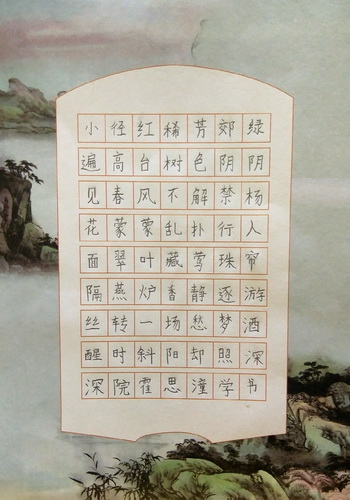 小径红稀芳郊绿
遍高台树色阴阴
见春风不解禁杨
花蒙蒙乱扑行人
面翠叶藏莺珠帘
隔燕炉香静逐游
丝转一场愁梦酒
醒时斜阳却照深
深院霍思潼学书